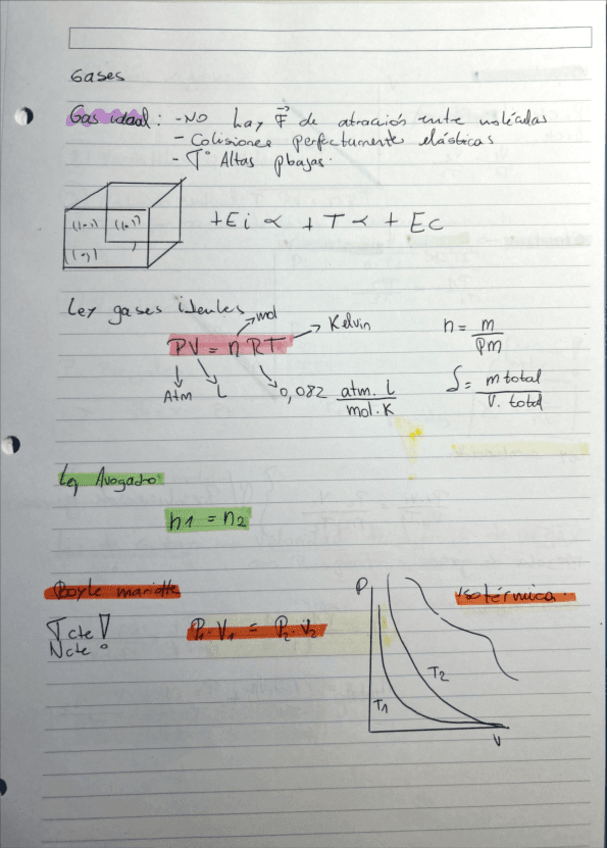 Gases
Gas ideal: - NO hay F⃗ de atracción entre moléculas
- Colisiones perfectamente elásticas
- T° Altas p bajas.
+Ei ∝ +T ∝ +Ec
Ley gases ideales
mol
Kelvin
PV = nRT
n = m / Pm
Atm
L
0,082 atm. L / mol.K
δ = m total / V. total
Ley Avogadro
n1 = n2
Boyle mariotte
Isotérmica.
P
T cte !
N cte
P1·V1 = P2·V2
T2
T1
V